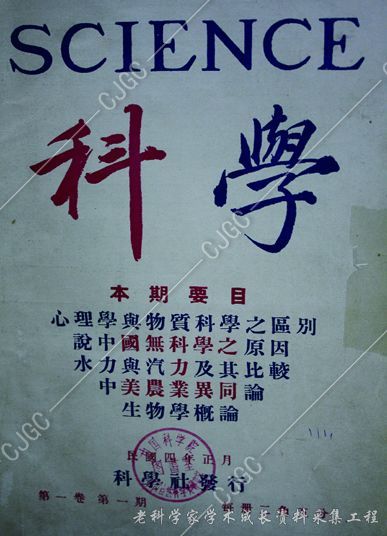 SCIENCE
科學
本期要目
心理學與物質科學之區別
說中國無科學之原因
水力與汽力及其比較
中美農業異同論
生物學概論
民國四年正月
科學社發行
第一卷第一期
中國科學院
老科学家学术成长资料采集工程
CJGC